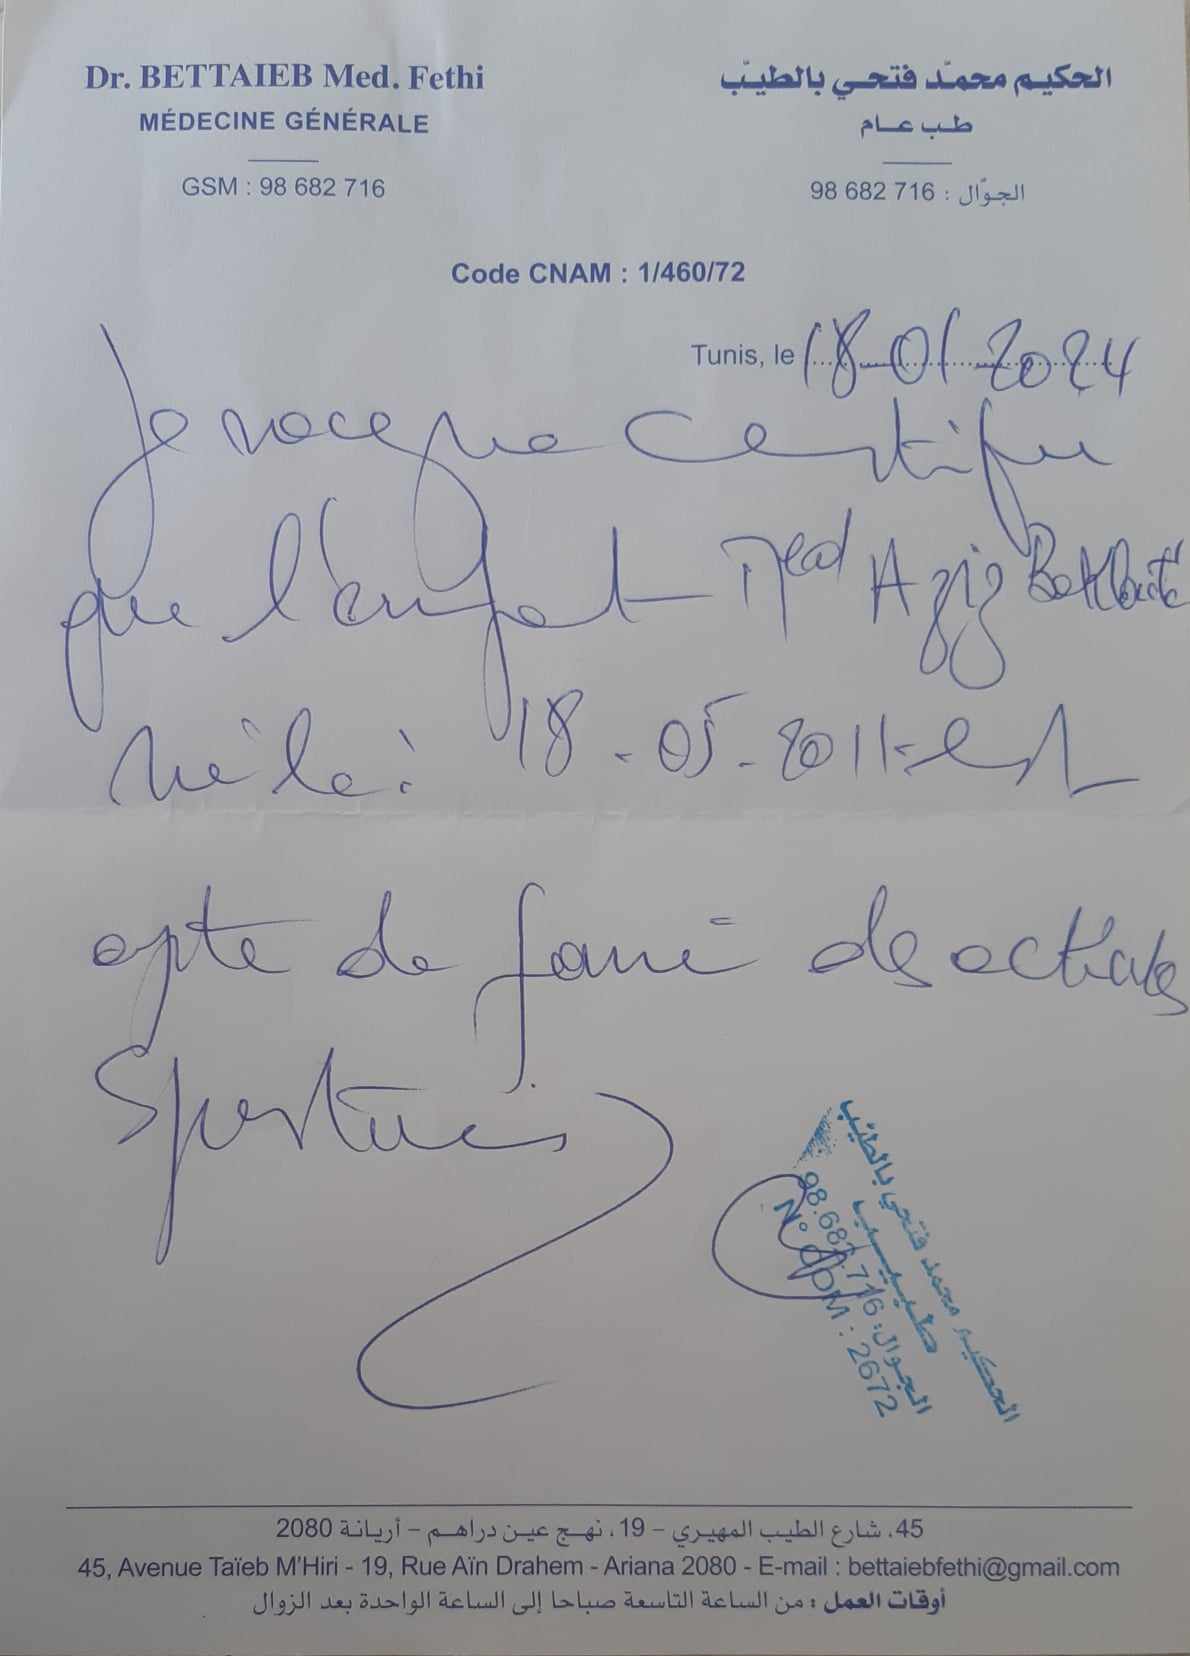 Dr. BETTAIEB Med. Fethi
MÉDECINE GÉNÉRALE
GSM : 98 682 716
الحكيم محمّد فتحي بالطيّب
طب عام
الجوّال : 98 682 716
Code CNAM : 1/460/72
Tunis, le 18-01-2024
Je certifie
que l'enfant Med Aziz
né le : 18-05-2011-est
apte de faire des activités
Sportives
الحكيم محمد فتحي بالطيّب
طبيب
الجوال: 98.682.716
N° CDM : 2672
45، شارع الطيب المهيري – 19، نهج عين دراهم – أريانة 2080
45, Avenue Taïeb M'Hiri - 19, Rue Aïn Drahem - Ariana 2080 - E-mail : bettaiebfethi@gmail.com
أوقات العمل : من الساعة التاسعة صباحا إلى الساعة الواحدة بعد الزوال